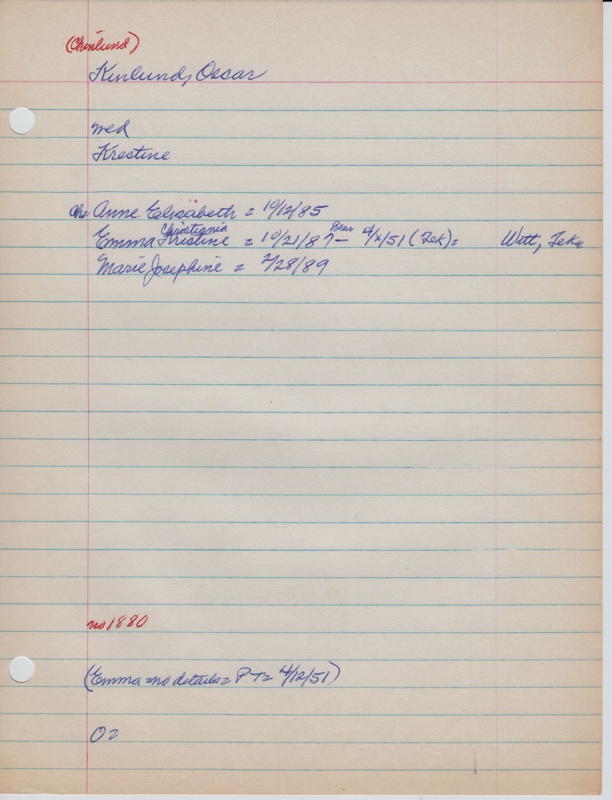 (Chinlund)
Kinlund, Oscar
med
Krestine
Chr Anne Elisabeth = 10/12/85
Christiania
Emma Kristine = 10/21/87 – 4/x/51 (Tek)= Witt, Teka
Marie Josephine = 2/28/89
no 1880
(Emma = no details = PT = 4/12/51)
O =